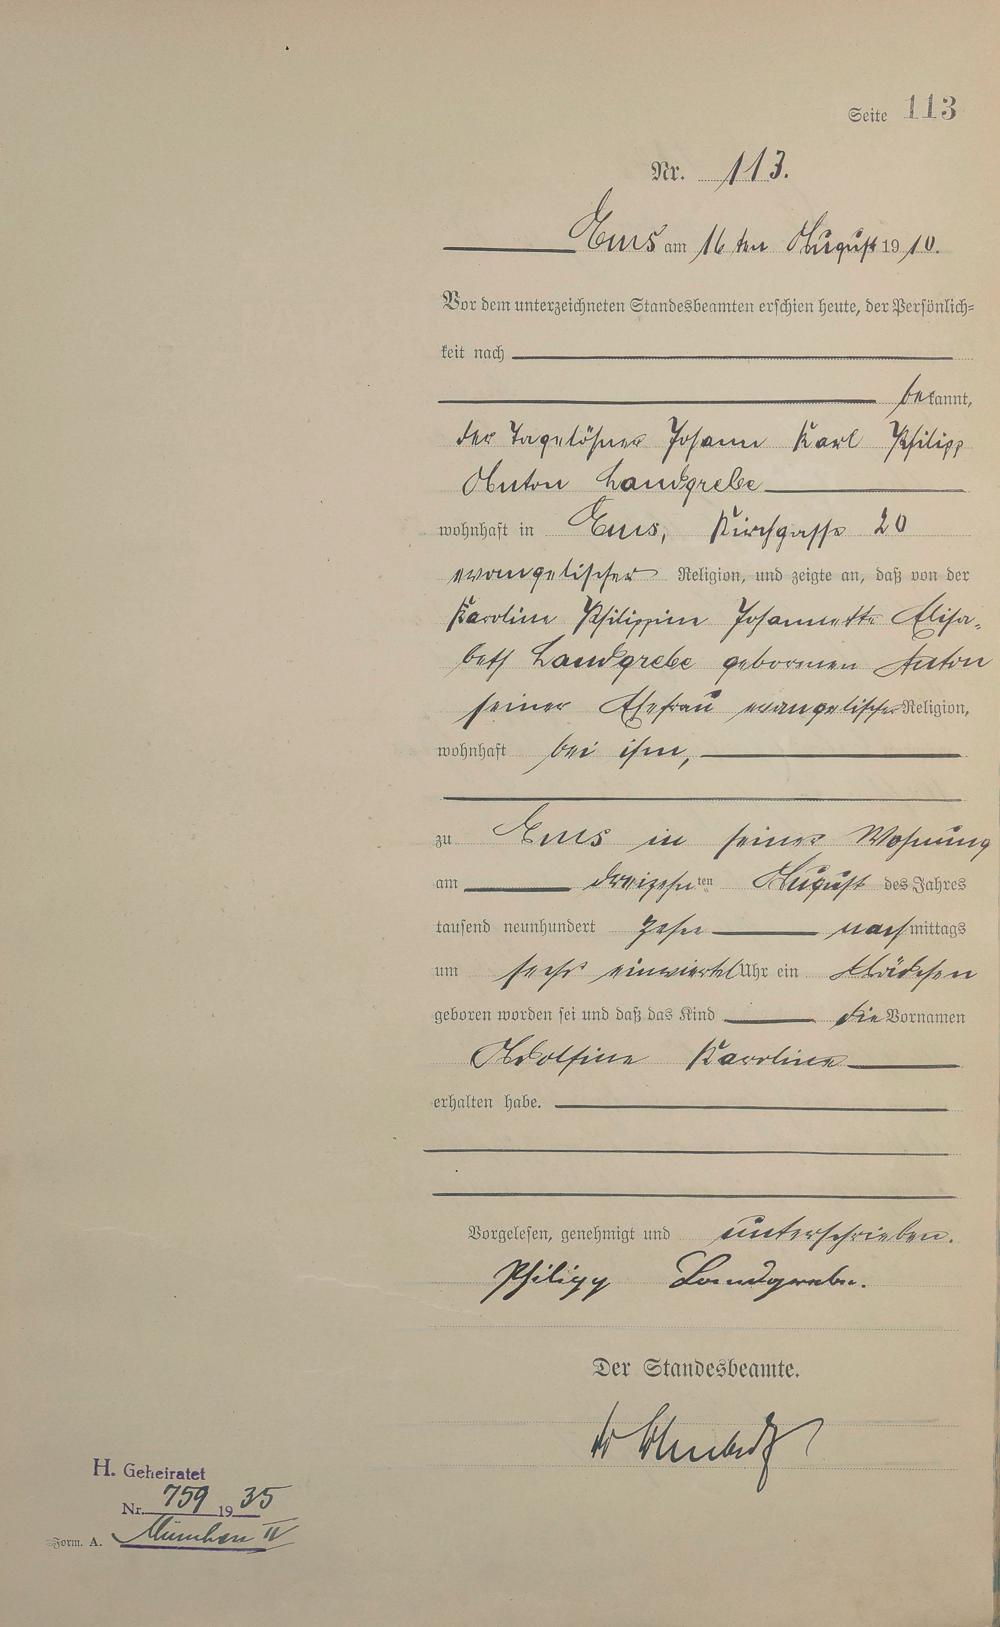 Seite 113
Nr. 113.
Ems am 16ten August 1910.
Vor dem unterzeichneten Standesbeamten erschien heute, der Persönlich=
keit nach
bekannt,
der Tagelöhner Johann Karl Philipp
Anton Landgrebe
wohnhaft in Ems, Kirchgasse 20
evangelischer Religion, und zeigte an, daß von der
Karoline Philippine Johannette Elisa=
beth Landgrebe geborenen Anton
seiner Ehefrau evangelischer Religion,
wohnhaft bei ihm,
zu Ems in seiner Wohnung
am dreizehnten August des Jahres
tausend neunhundert zehn nachmittags
um sechs einviertel Uhr ein Mädchen
geboren worden sei und daß das Kind die Vornamen
Adolfine Karoline
erhalten habe.
Vorgelesen, genehmigt und unterschrieben.
Philipp Landgrebe.
Der Standesbeamte.
H. Geheiratet
Nr. 759 1935
München II
Form. A.